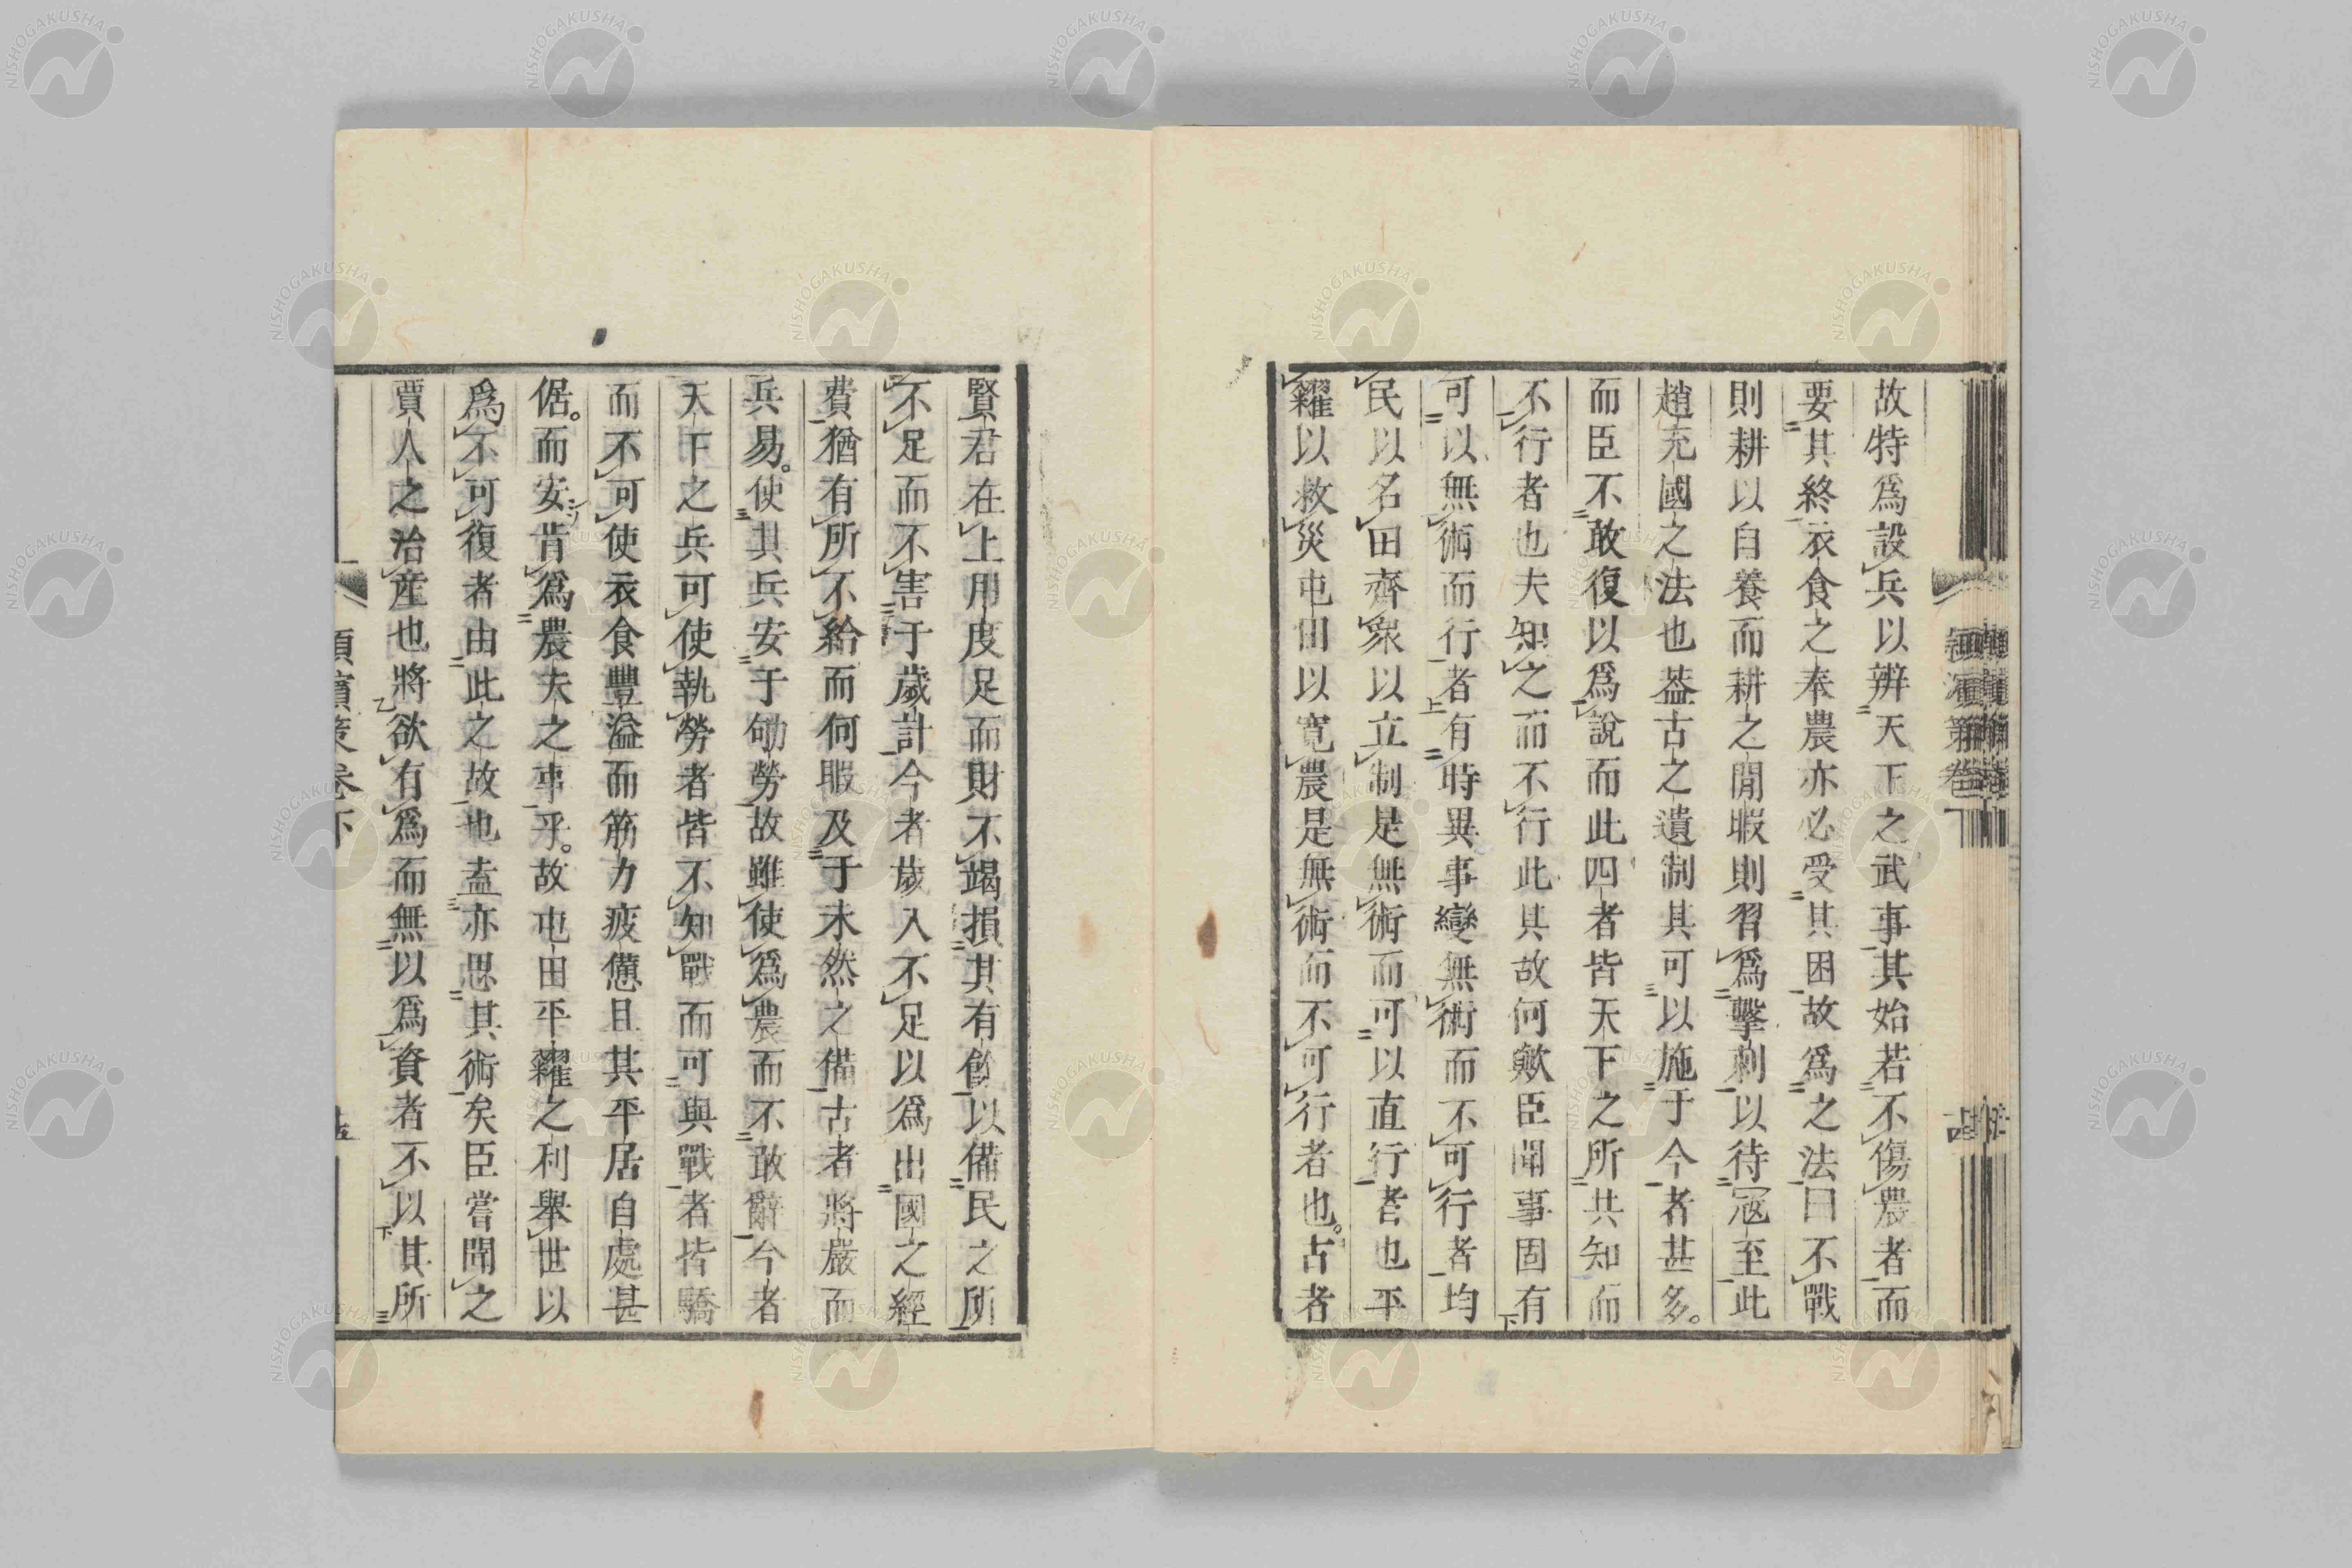 故特爲設兵以辨天下之武事其始若不傷農者而
要其終衣食之奉農亦必受其困故爲之法曰不戰
則耕以自養而耕之閒暇則習爲擊刺以待冦至此
趙充國之法也葢古之遺制其可以施于今者甚多。
而臣不敢復以爲說而此四者皆天下之所共知而
不行者也夫知之而不行此其故何歟臣聞事固有
可以無術而行者有時異事變無術而不可行者均
民以名田齊衆以立制是無術而可以直行者也平
糴以救災屯田以寛農是無術而不可行者也。古者
賢君在上用度足而財不竭損其有餘以備民之所
不足而不害于歲計今者歲入不足以爲出國之經
費猶有所不給而何暇及于未然之備古者將嚴而
兵易。使其兵安于劬勞故雖使爲農而不敢辭今者
天下之兵可使執勞者皆不知戰而可與戰者皆驕
而不可使衣食豐溢而筋力疲憊且其平居自處甚
倨。而安肯爲農夫之事乎。故屯田平糴之利舉世以
爲不可復者由此之故也盍亦思其術矣臣嘗聞之
賈人之治產也將欲有爲而無以爲資者不以其所
頴濱策卷下
十五
NISHOGAKUSHA